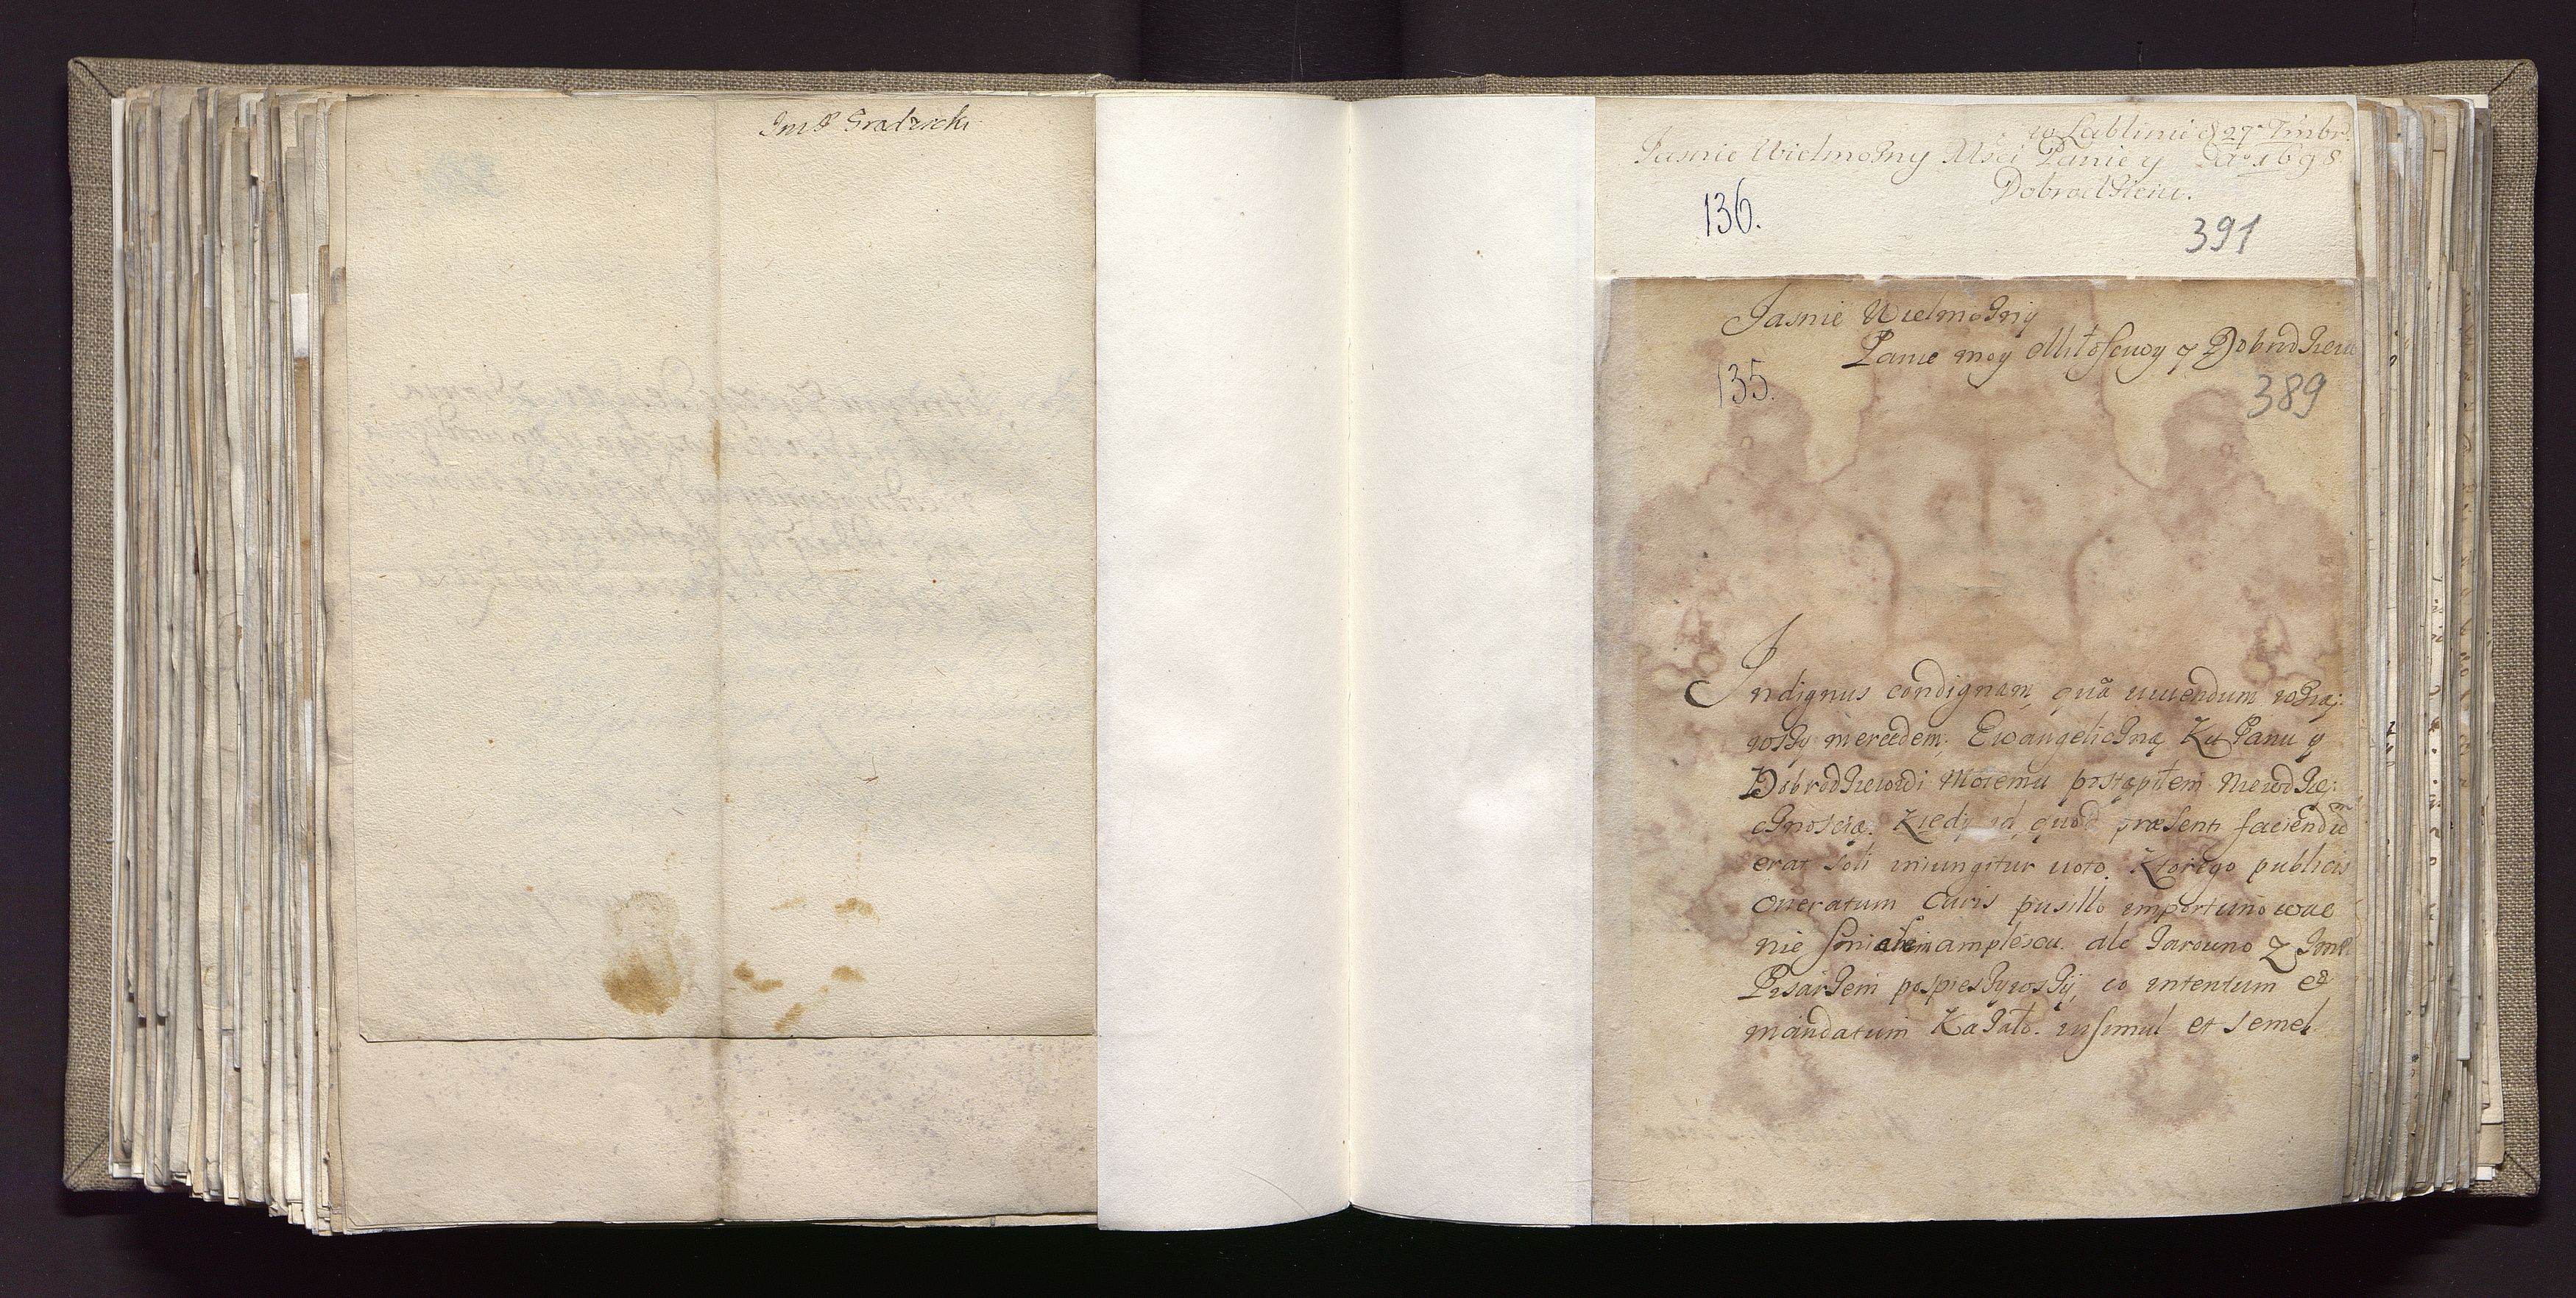 ImP Gradzicki
w Lublinie d 27 
Jasnie Wielmożny Mści Panie y Ao 1698
Dobrodzieiu.
136.
391
Jasnie Wielmożny
Panie moy Miłosciwy y Dobrodzieiu
135.
389
Indignus condignam, quã viuendum wzią-
wszy mercedem, Ewangeliczną Ku Panu y
Dobrodzieiowi Moiemu postąpiłem niewdzię-
cznoscią. Kiedy id, quod præsenti faciendũ
erat soli iniungitur uoto. Ktorego publicis
oneratum curis pusillo importunowac
nie smiałem amplexu. ale zarowno Z ImP
Pisarzem pospieszywszy, co intentum et
mandatum Kazało. insimul et semel